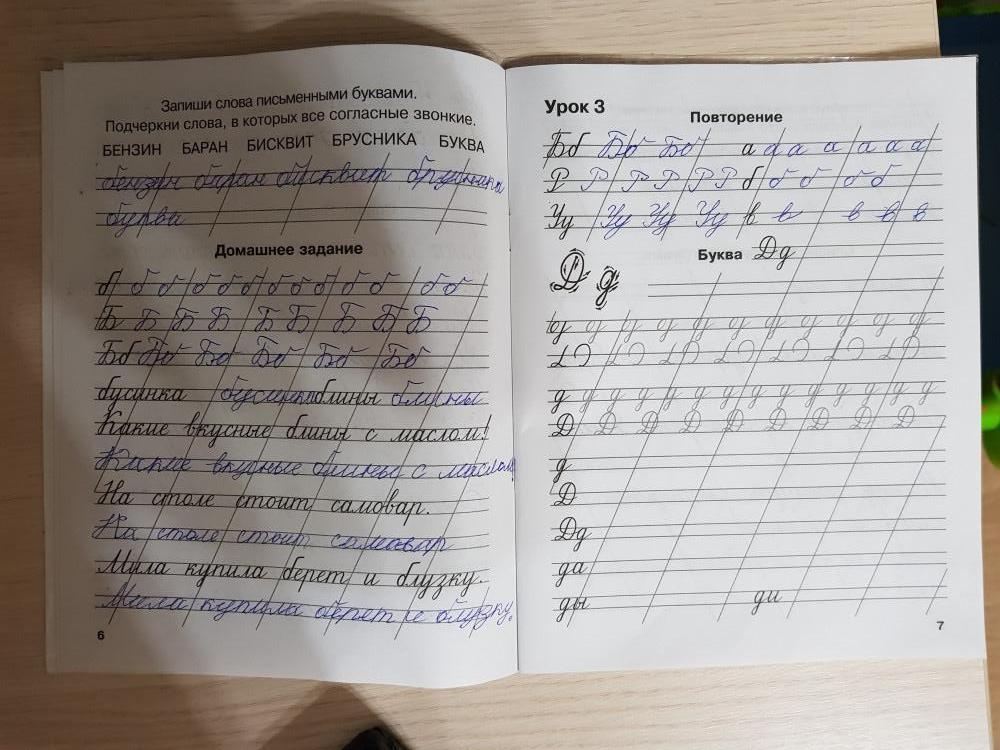 Запиши слова письменными буквами.
Подчеркни слова, в которых все согласные звонкие.
БЕНЗИН БАРАН БИСКВИТ БРУСНИКА БУКВА
бензин баран бисквит брусника
буква
Домашнее задание
б б б б б б б б б б б б б
Б Б Б Б Б Б Б Б Б
Бб Бб Бб Бб Бб Бб
бусинка бусинка блины блины
Какие вкусные блины с маслом!
Какие вкусные блины с маслом
На столе стоит самовар.
На столе стоит самовар
Мила купила берет и блузку.
Мила купила берет и блузку.
6
Урок 3
Повторение
Бб Бб Бб а а а а а а а
Р Р Р Р Р Р б б б б б
Уу Уу Уу Уу в в в в в
Буква Дд
Д д
д д д д д д д д д д д
д д д д д д д д д д д д д
Д Д Д Д Д Д Д Д
д
Д
Дд
да
ды ди
7